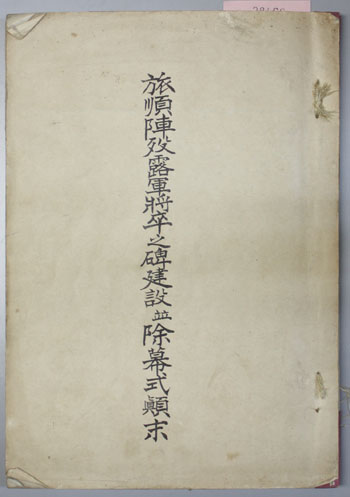 旅順陣歿露軍將卒之碑建設並除幕式顚末